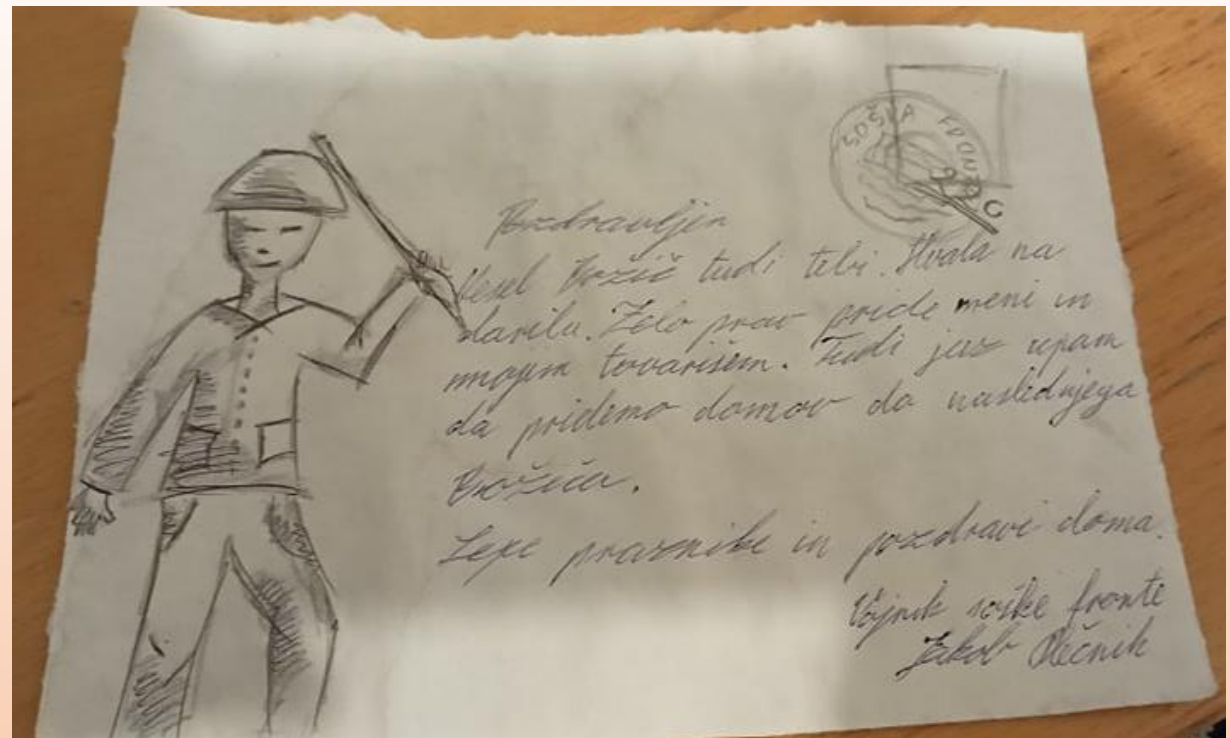 SOŠKA FRONTA
Pozdravljen
Vesel Božič tudi tebi. Hvala na
darilu. Zelo prav pride meni in
mojim tovarišem. Tudi jaz upam
da pridemo domov do naslednjega
Božiča.
Lepe praznike in pozdravi doma.
Vojnik soške fronte
Jakob